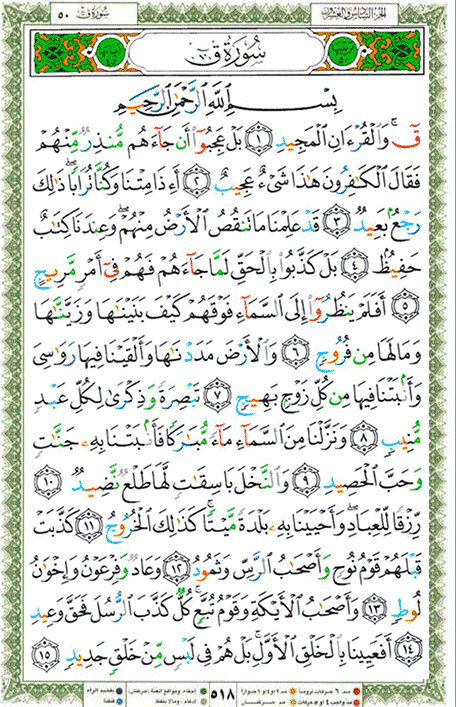 سُورَةُ ق ٥٠
الجزء السادس والعشرون
سُورَةُ ق
بِسْمِ ٱللَّهِ ٱلرَّحْمَٰنِ ٱلرَّحِيمِ
قٓ ۚ وَٱلْقُرْءَانِ ٱلْمَجِيدِ ١ بَلْ عَجِبُوٓا۟ أَن جَآءَهُم مُّنذِرٌ مِّنْهُمْ
فَقَالَ ٱلْكَٰفِرُونَ هَٰذَا شَىْءٌ عَجِيبٌ ٢ أَءِذَا مِتْنَا وَكُنَّا تُرَابًا ۖ ذَٰلِكَ
رَجْعٌۢ بَعِيدٌ ٣ قَدْ عَلِمْنَا مَا تَنقُصُ ٱلْأَرْضُ مِنْهُمْ ۖ وَعِندَنَا كِتَٰبٌ
حَفِيظٌۢ ٤ بَلْ كَذَّبُوا۟ بِٱلْحَقِّ لَمَّا جَآءَهُمْ فَهُمْ فِىٓ أَمْرٍ مَّرِيجٍ
٥ أَفَلَمْ يَنظُرُوٓا۟ إِلَى ٱلسَّمَآءِ فَوْقَهُمْ كَيْفَ بَنَيْنَٰهَا وَزَيَّنَّٰهَا
وَمَا لَهَا مِن فُرُوجٍ ٦ وَٱلْأَرْضَ مَدَدْنَٰهَا وَأَلْقَيْنَا فِيهَا رَوَٰسِىَ
وَأَنۢبَتْنَا فِيهَا مِن كُلِّ زَوْجٍۭ بَهِيجٍ ٧ تَبْصِرَةً وَذِكْرَىٰ لِكُلِّ عَبْدٍ
مُّنِيبٍ ٨ وَنَزَّلْنَا مِنَ ٱلسَّمَآءِ مَآءً مُّبَٰرَكًا فَأَنۢبَتْنَا بِهِۦ جَنَّٰتٍ
وَحَبَّ ٱلْحَصِيدِ ٩ وَٱلنَّخْلَ بَاسِقَٰتٍ لَّهَا طَلْعٌ نَّضِيدٌ ١٠
رِّزْقًا لِّلْعِبَادِ ۖ وَأَحْيَيْنَا بِهِۦ بَلْدَةً مَّيْتًا ۚ كَذَٰلِكَ ٱلْخُرُوجُ ١١ كَذَّبَتْ
قَبْلَهُمْ قَوْمُ نُوحٍ وَأَصْحَٰبُ ٱلرَّسِّ وَثَمُودُ ١٢ وَعَادٌ وَفِرْعَوْنُ وَإِخْوَٰنُ
لُوطٍ ١٣ وَأَصْحَٰبُ ٱلْأَيْكَةِ وَقَوْمُ تُبَّعٍ ۚ كُلٌّ كَذَّبَ ٱلرُّسُلَ فَحَقَّ وَعِيدِ
١٤ أَفَعَيِينَا بِٱلْخَلْقِ ٱلْأَوَّلِ ۚ بَلْ هُمْ فِى لَبْسٍ مِّنْ خَلْقٍ جَدِيدٍ ١٥
٥١٨